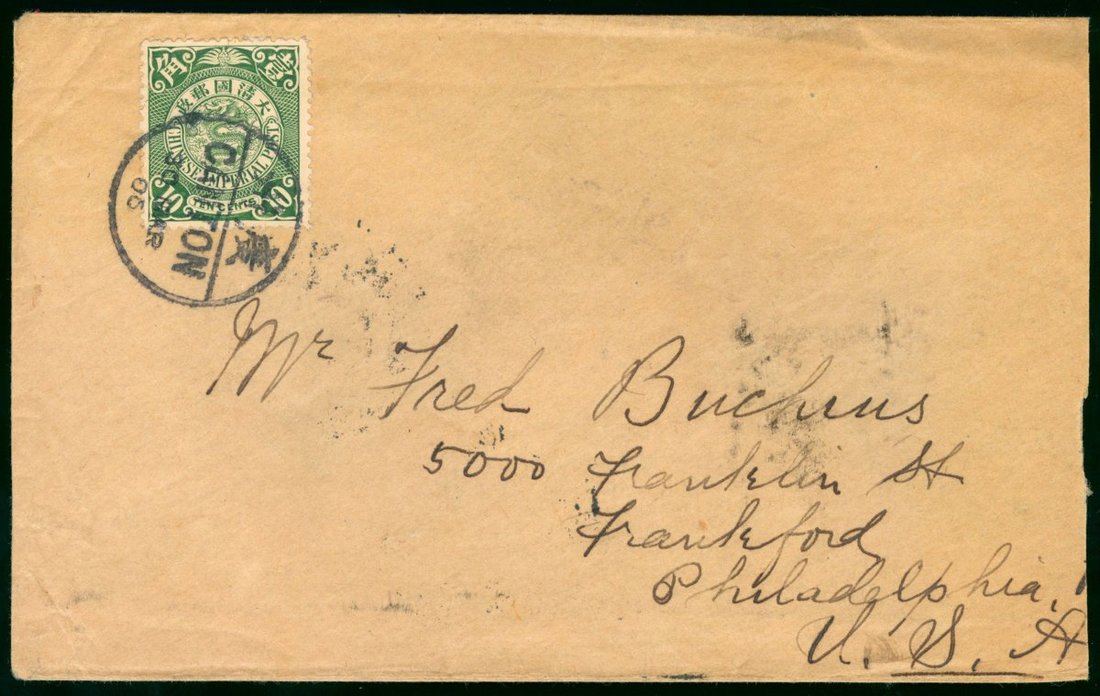 角 壹
大清國郵政
CHINESE IMPERIAL POST
10 TEN CENTS 10
CANTON
30 MAR
06
廣
Mr Fred Buchus
5000 Franklin St
Frankford
Philadelphia,
U. S. A